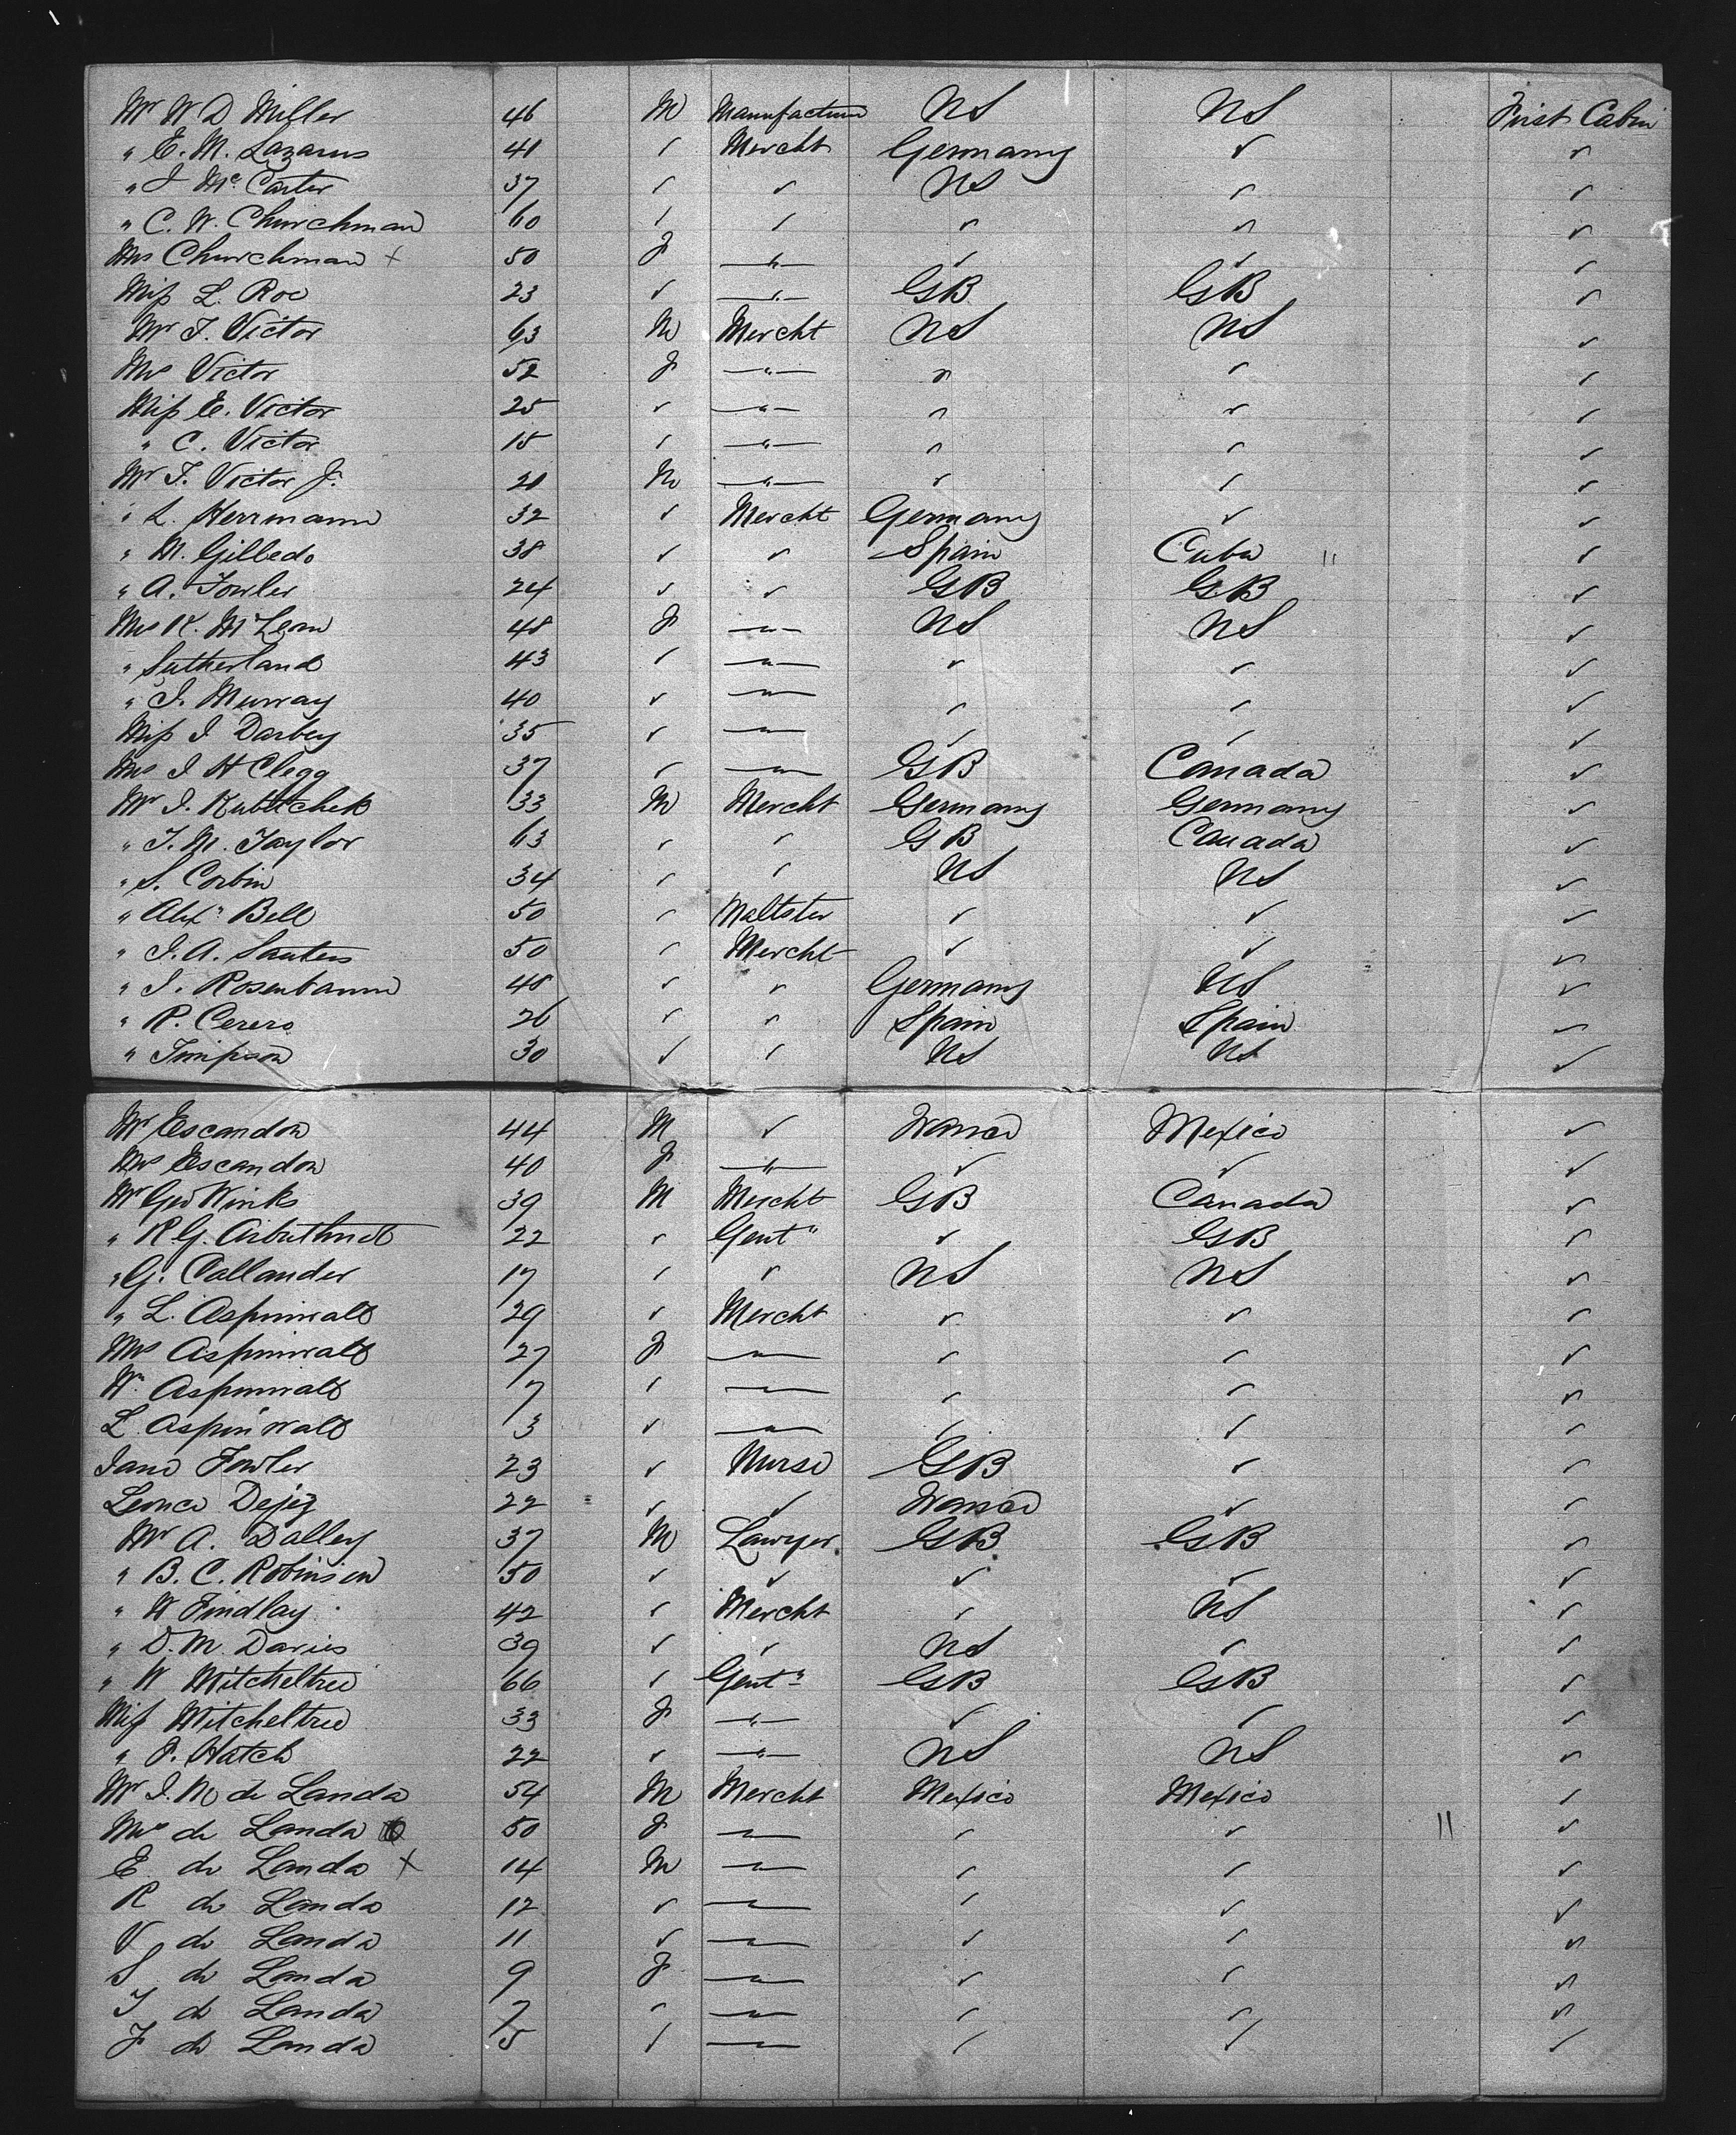 Mr W D Miller 46 M Manufacturer US US First Cabin
" E. M. Lazarus 41 ✓ Mercht Germany ✓ ✓
" J Mc Carter 37 ✓ ✓ US ✓ ✓
" C. W. Churchman 60 ✓ ✓ ✓ ✓ ✓
Mrs Churchman × 50 F —"— ✓ ✓ ✓
Miss L. Roe 23 ✓ —"— GB GB ✓
Mr T. Victor 63 M Mercht US US ✓
Mrs Victor 52 F —"— ✓ ✓ ✓
Miss E. Victor 25 ✓ —"— ✓ ✓ ✓
" C. Victor 15 ✓ —"— ✓ ✓ ✓
Mr T. Victor Jr. 21 M —"— ✓ ✓ ✓
" L. Herrmann 32 ✓ Mercht Germany ✓ ✓
" M. Gilledo 38 ✓ ✓ Spain Cuba 11 ✓
" A. Fowler 24 ✓ ✓ GB GB ✓
Mrs K. McLean 48 F —"— US US ✓
" Sutherland 43 ✓ —"— ✓ ✓ ✓
" J. Murray 40 ✓ —"— ✓ ✓ ✓
Miss J Darbey 35 ✓ —"— ✓ ✓ ✓
Mrs J H Clegg 37 ✓ —"— GB Canada ✓
Mr J. Kubitchek 33 M Mercht Germany Germany ✓
" J. M. Taylor 63 ✓ ✓ GB Canada ✓
" S. Corbin 34 ✓ ✓ US US ✓
" Alexr Bell 50 ✓ Maltster ✓ ✓ ✓
" J. A. Santers 50 ✓ Mercht ✓ ✓ ✓
" J. Rosenbaum 48 ✓ ✓ Germany US ✓
" P. Cerero 26 ✓ ✓ Spain Spain ✓
" Timpson 30 ✓ ✓ US US ✓
Mr Escandon 44 M ✓ France Mexico ✓
Mrs Escandon 40 F —"— ✓ ✓ ✓
Mr Geo Winks 39 M Mercht GB Canada ✓
" R G. Arbuthnot 22 ✓ Gentn ✓ GB ✓
" G. Callander 17 ✓ ✓ US US ✓
" L. Aspinwall 29 ✓ Mercht ✓ ✓ ✓
Mrs Aspinwall 27 F —"— ✓ ✓ ✓
Wm Aspinwall 7 ✓ —"— ✓ ✓ ✓
L Aspinwall 3 ✓ —"— ✓ ✓ ✓
Jane Fowler 23 ✓ Nurse GB ✓ ✓
Leonce Dejez 22 ✓ ✓ France ✓ ✓
Mr A. Dalley 37 M Lawyer GB GB ✓
" B. C. Robinson 50 ✓ ✓ ✓ ✓ ✓
" W Findlay 42 ✓ Mercht ✓ US ✓
" D. M. Davies 39 ✓ ✓ US ✓ ✓
" W Mitcheltree 66 ✓ Gentn GB GB ✓
Miss Mitcheltree 33 F —"— ✓ ✓ ✓
" P. Hatch 22 ✓ —"— US US ✓
Mr J. M de Landa 54 M Mercht Mexico Mexico ✓
Mrs de Landa 50 F —"— ✓ ✓ 11 ✓
E de Landa × 14 M —"— ✓ ✓ ✓
R de Landa 12 ✓ —"— ✓ ✓ ✓
V de Landa 11 ✓ —"— ✓ ✓ ✓
S de Landa 9 F —"— ✓ ✓ ✓
J de Landa 7 ✓ —"— ✓ ✓ ✓
F de Landa 5 ✓ —"— ✓ ✓ ✓